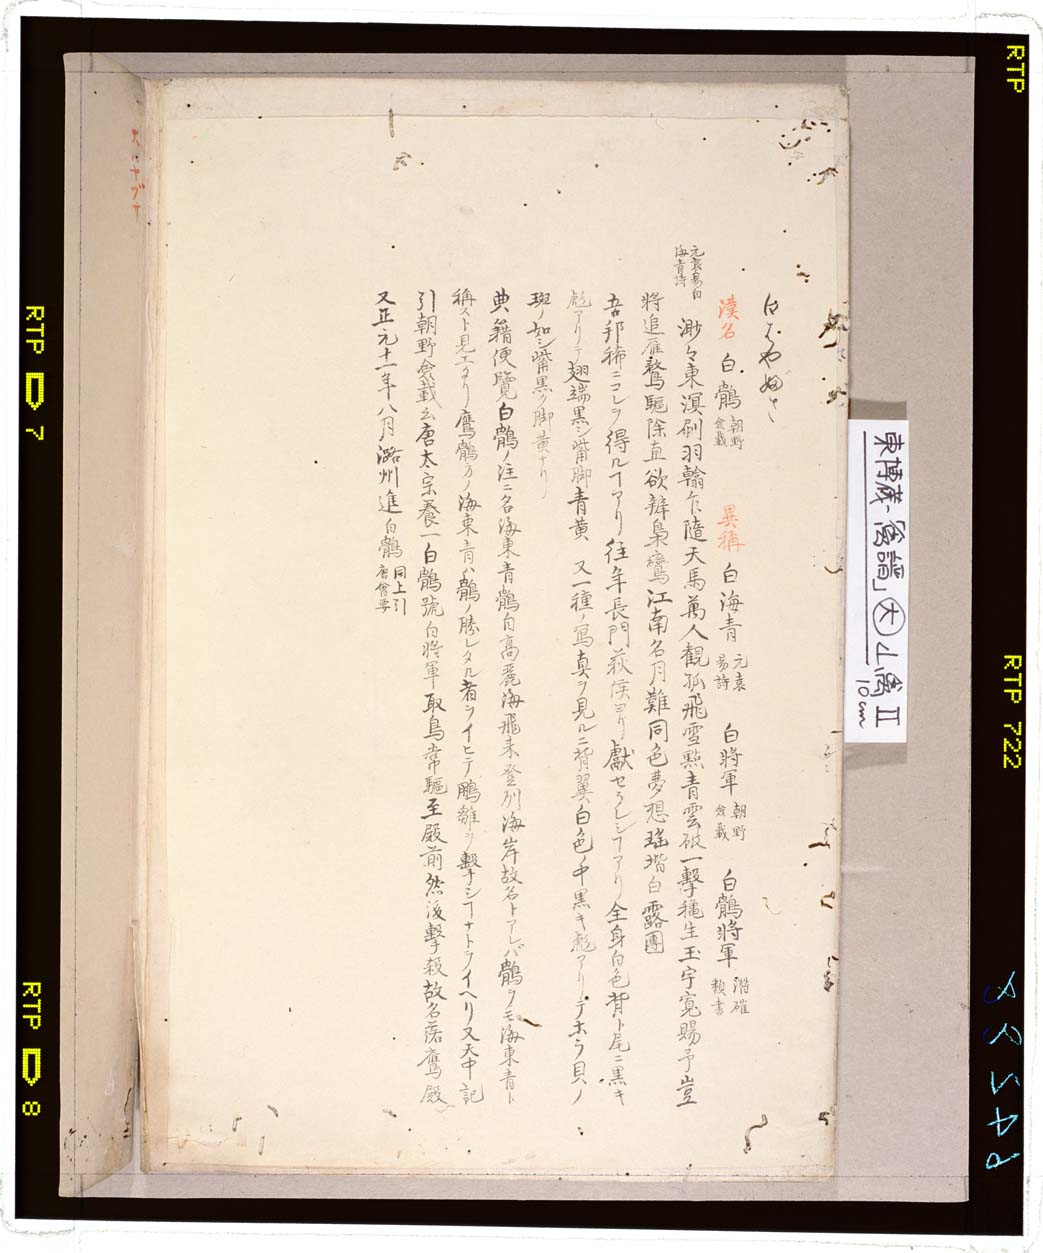 白はやぶさ
漢名 白鶻 朝野僉載 異稱 白海青 元袁易詩 白將軍 朝野僉載 白鶻將軍 潜確類書
元袁易白海青詩
渺々東溟刷羽翰乍隨天馬萬人觀孤飛雪點青雲破一擊穐生玉宇寬賜予豈
將追雁鶩驅除直欲辨梟鸞江南名月難同色夢想瑤堦白露團
吾邦稀ニコレヲ得ルヿアリ往年長門萩侯ヨリ獻セラレシヿアリ全身白色背ト尾ニ黒キ
彪アリテ翅端黒シ觜脚青黄 又一種ノ寫真ヲ見ルニ背翼白色ノ中黒キ彪アリテホラ貝ノ
斑ノ如シ觜黒ク脚黄ナリ
典籍便覽白鶻ノ注ニ名海東青鶻自高麗海飛来登州海岸故名トアレバ鶻ヲモ海東青ト
稱スト見エタリ鷹鶻方ノ海東青ハ鶻ノ勝レタル者ヲイヒテ鵰雛ヲ擊シヿナトヲイヘリ又天中記
引朝野僉載云唐太宗養一白鶻號白將軍取鳥常驅至殿前然後擊殺故名落鷹殿
又正元十一年八月潞州進白鶻 同上引唐會要
東博蔵「禽譜」大 山禽 II
10cm
RTP
RTP 7
RTP 722
RTP 8